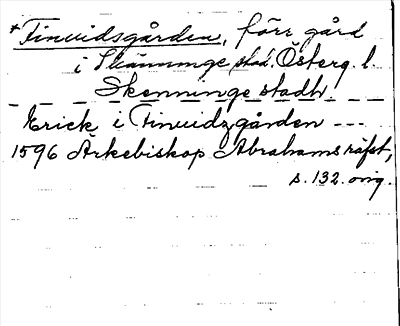 *Finvidsgården, förr gård
i Skänninge stad. Österg. l.
Skenninge stadh.
Erick i Finvidzgården ---
1596 Ärkebiskop Abrahams räfst,
s. 132. orig.